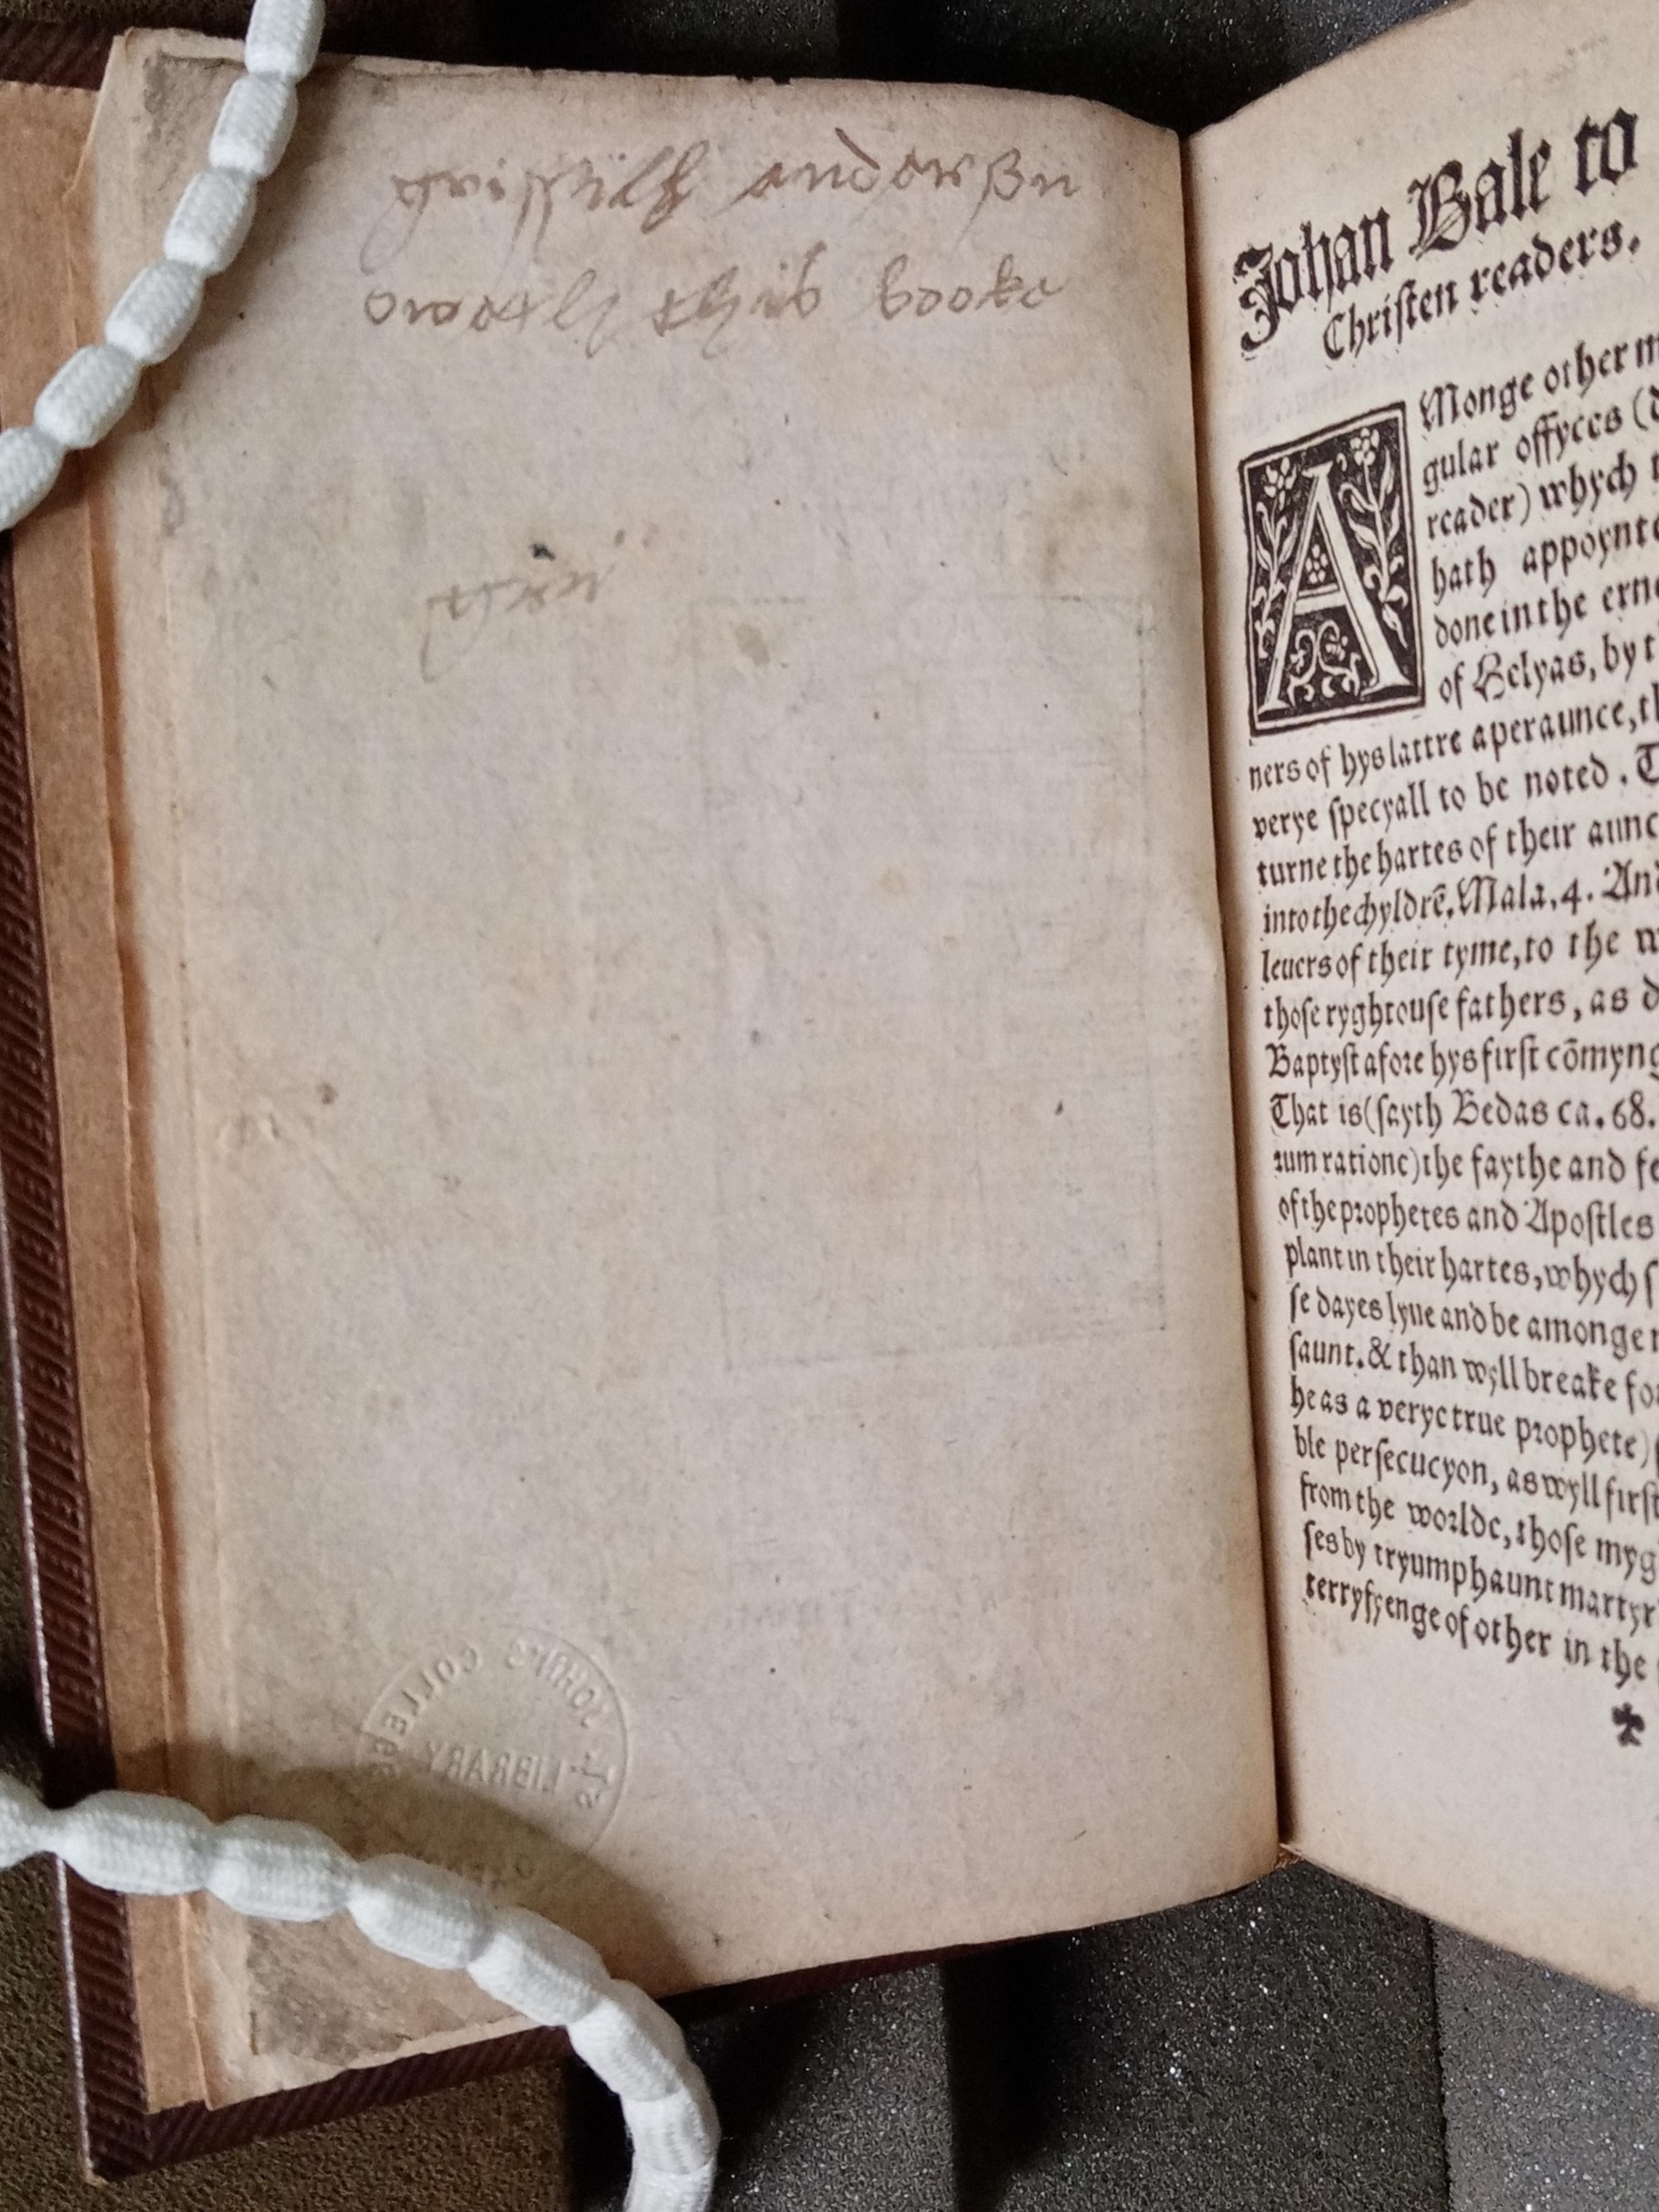 grissill anderson
oweth this booke
ST. JOHN'S COLLEGE
LIBRARY
Johan Bale to
Christen readers.
AMonge other m
gular offyces (d
reader) whych
hath appoynte
done in the erne
of Helyas, by t
ners of hys lattre aperaunce, th
verye specyall to be noted. T
turne the hartes of their aunc
into the chyldrē. Mala. 4. And
leuers of their tyme, to the w
those ryghtouse fathers, as d
Baptyst afore hys first cōmyng
That is (sayth Bedas ca. 68.
rum ratione) the faythe and fe
of the prophetes and Apostles
plant in their hartes, whych s
se dayes lyue and be amonge
saunt. & than wyll breake for
he as a verye true prophete)
ble persecucyon, as wyll first
from the worlde, those myg
ses by tryumphaunt martyr
terryfyenge of other in the